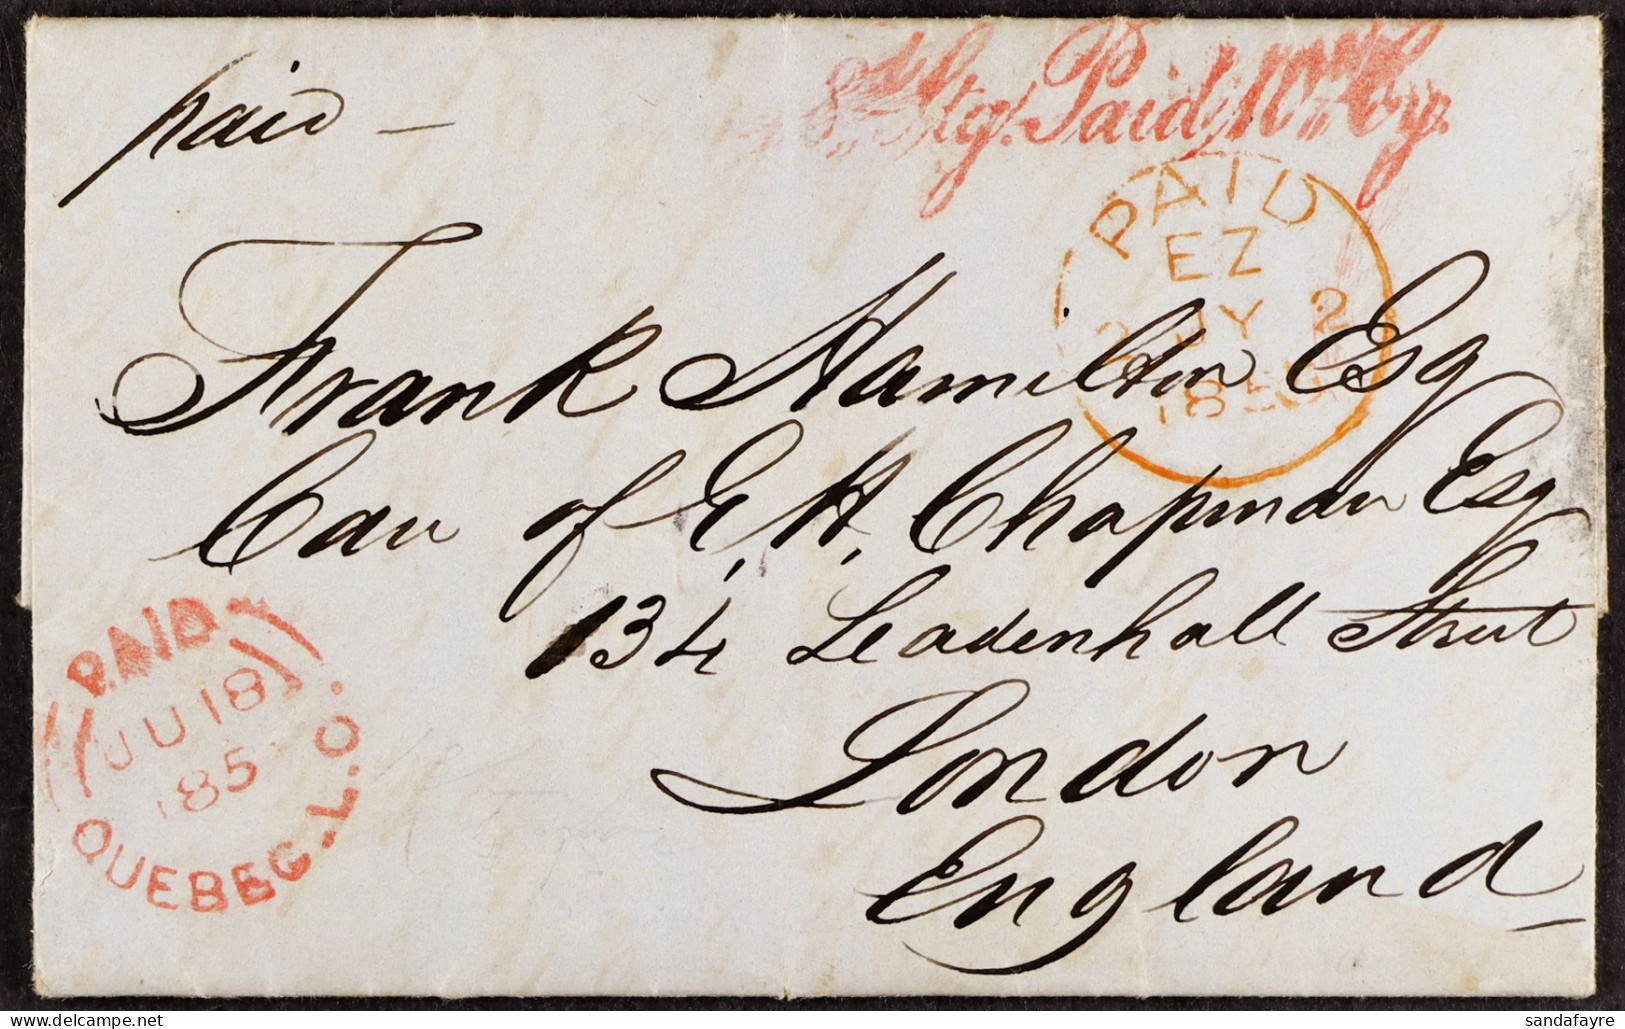 paid –
8d Stg. Paid, 10d Cy.
PAID
EZ
2 JY 2
185
Frank Hamilton Esq
Care of E. H. Chapman Esq
134 Leadenhall Street
London
England
PAID
JU 18
185
QUEBEC, L.C.
sandafayre